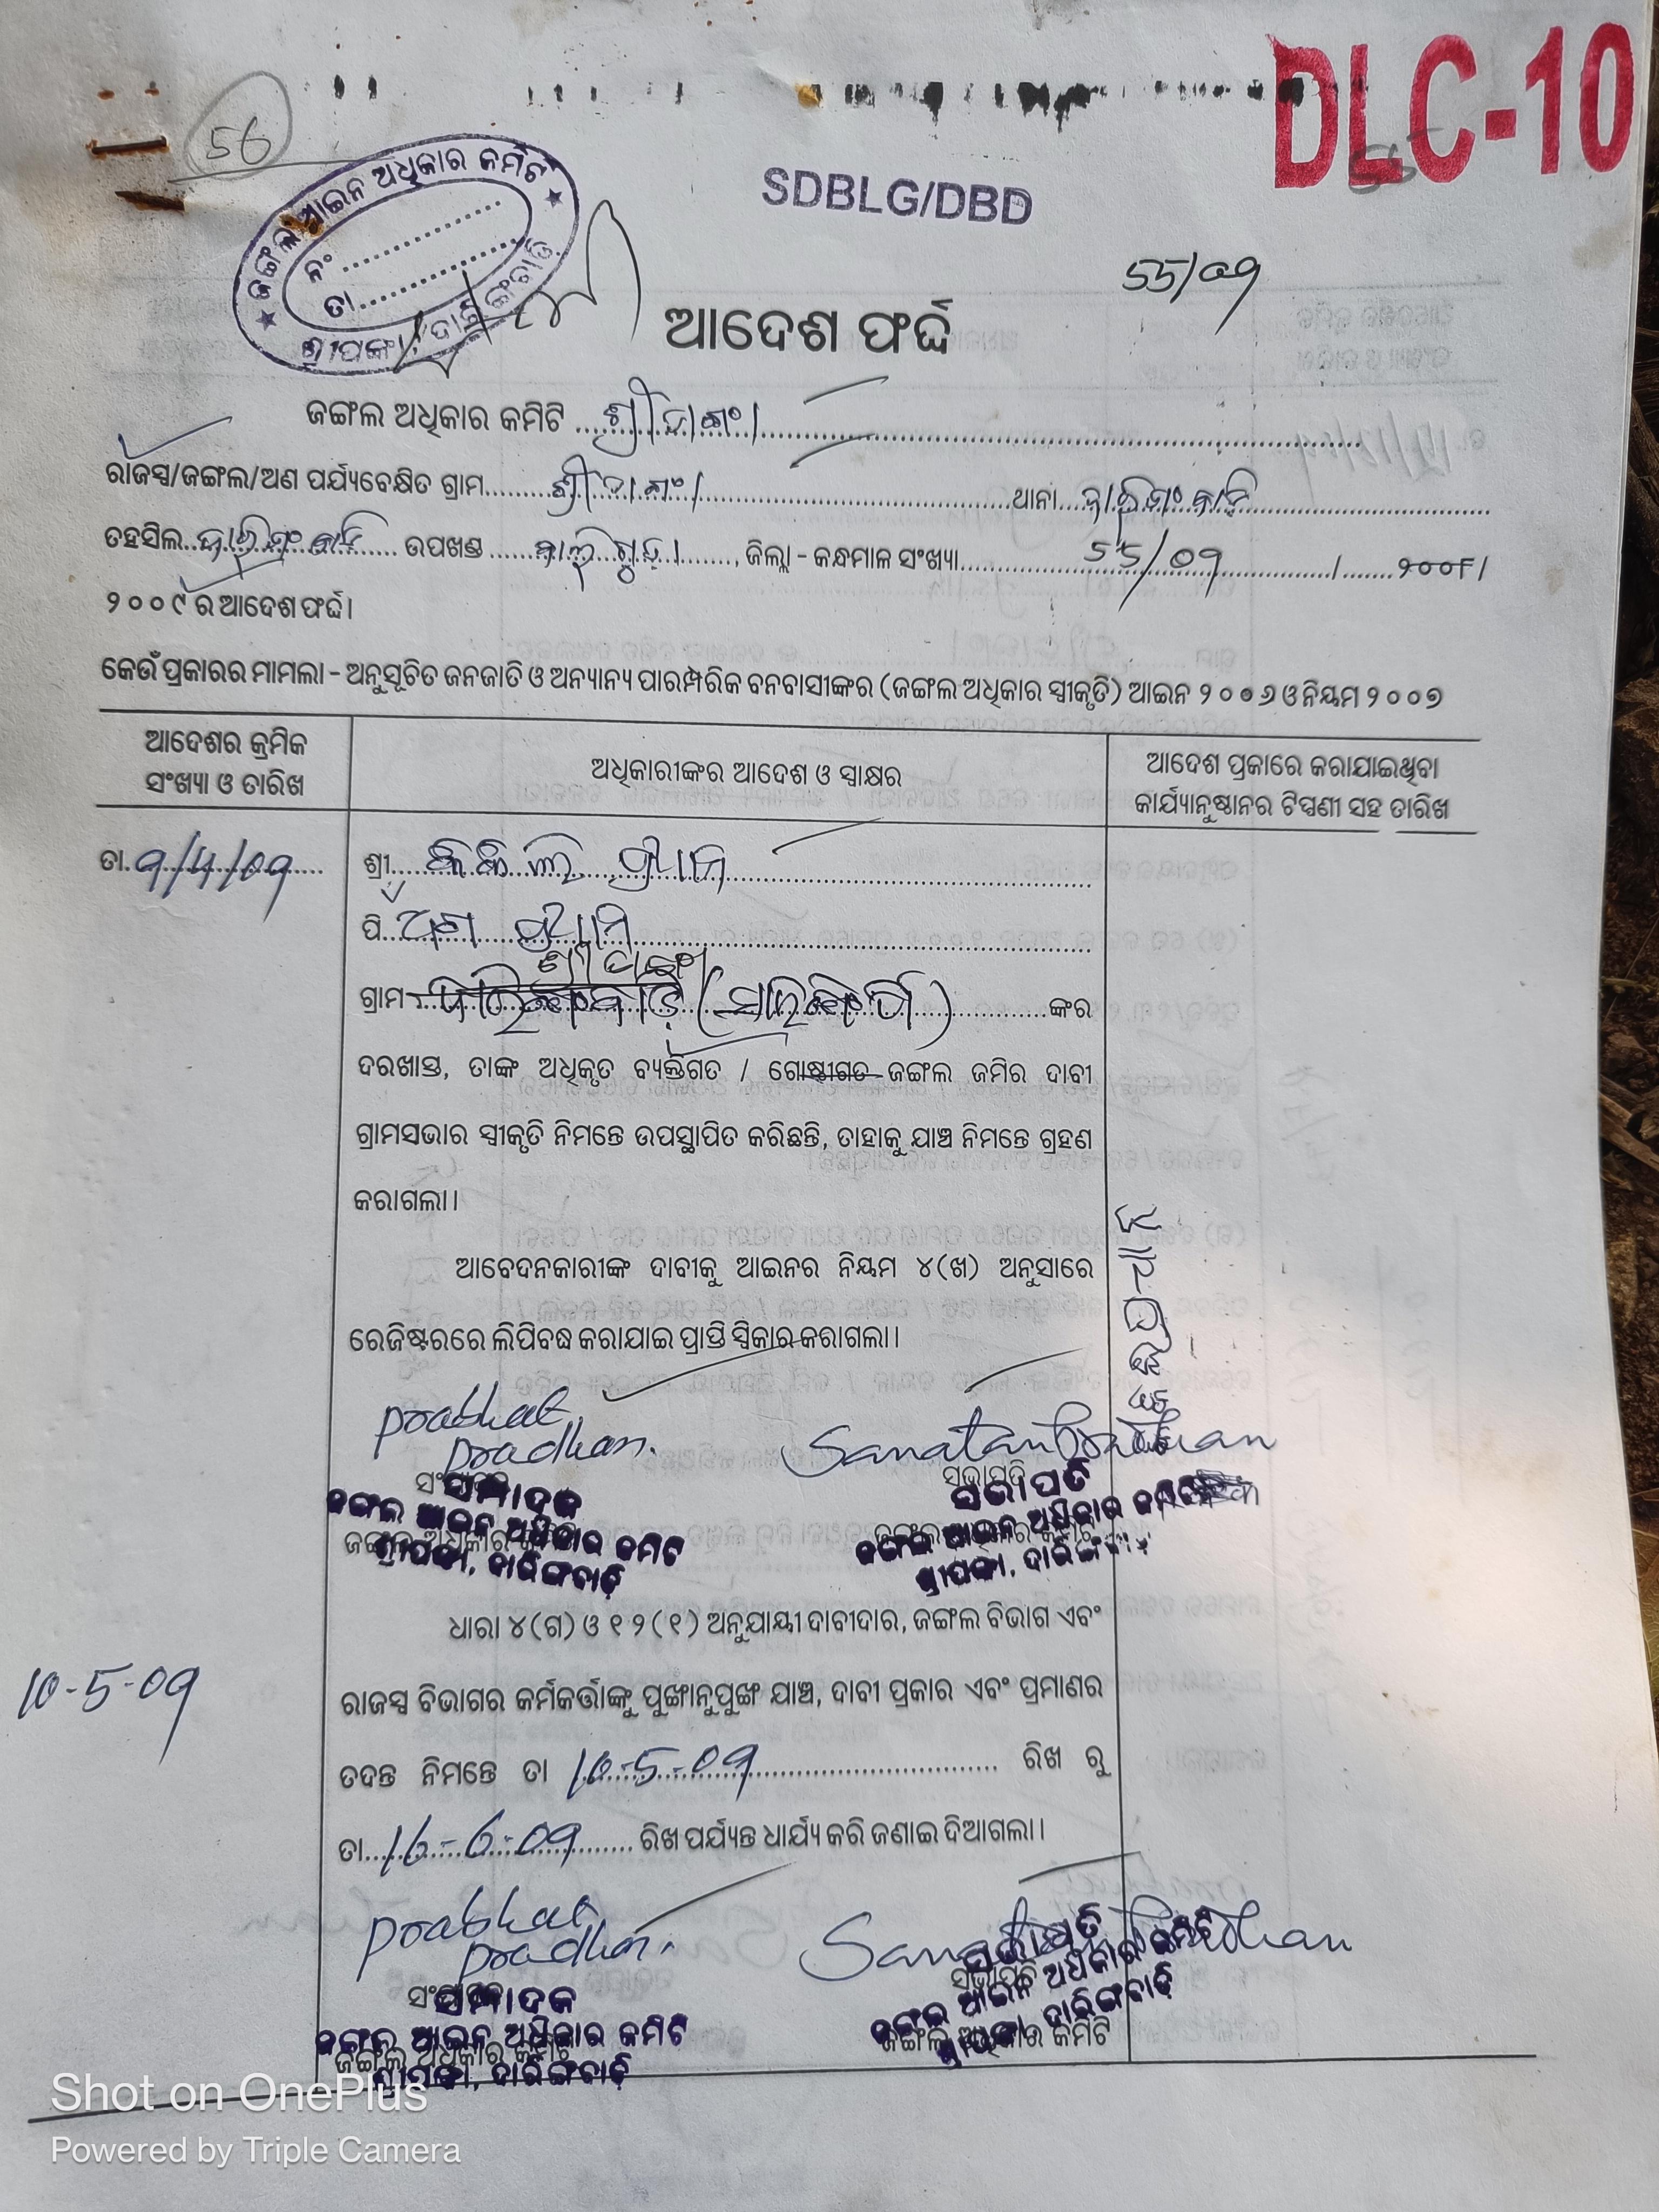 DLC-10
56
55
ଜଙ୍ଗଲ ଆଇନ ଅଧିକାର କମିଟି
ନଂ ....................
ତା ....................
ଶ୍ରୀପଙ୍କା, ଦାରିଙ୍ଗବାଡ଼ି
SDBLG/DBD
55/09
ଆଦେଶ ଫର୍ଦ୍ଦ
ଜଙ୍ଗଲ ଅଧିକାର କମିଟି
ରାଜସ୍ୱ/ଜଙ୍ଗଲ/ଅଣ ପର୍ଯ୍ୟବେକ୍ଷିତ ଗ୍ରାମ ଥାନା
ତହସିଲ ଉପଖଣ୍ଡ ବାଲିଗୁଡା, ଜିଲ୍ଲା - କନ୍ଧମାଳ ସଂଖ୍ୟା 55/09 ।
୨୦୦୯ ର ଆଦେଶ ଫର୍ଦ୍ଦ।
କେଉଁ ପ୍ରକାରର ମାମଲା - ଅନୁସୂଚିତ ଜନଜାତି ଓ ଅନ୍ୟାନ୍ୟ ପାରମ୍ପରିକ ବନବାସୀଙ୍କର (ଜଙ୍ଗଲ ଅଧିକାର ସ୍ୱୀକୃତି) ଆଇନ ୨୦୦୬ ଓ ନିୟମ ୨୦୦୭
ଆଦେଶର କ୍ରମିକ ସଂଖ୍ୟା ଓ ତାରିଖ
ଅଧିକାରୀଙ୍କର ଆଦେଶ ଓ ସ୍ୱାକ୍ଷର
ଆଦେଶ ପ୍ରକାରେ କରାଯାଇଥିବା କାର୍ଯ୍ୟାନୁଷ୍ଠାନର ଟିପ୍ପଣୀ ସହ ତାରିଖ
ତା. 9/4/09
ଶ୍ରୀ ପ୍ରଧାନ
ପି ପ୍ରଧାନ
ଶ୍ରୀପଙ୍କା
ଗ୍ରାମ ଦାରିଙ୍ଗବାଡ଼ି ଙ୍କର
ଦରଖାସ୍ତ, ତାଙ୍କ ଅଧିକୃତ ବ୍ୟକ୍ତିଗତ / ଗୋଷ୍ଠୀଗତ ଜଙ୍ଗଲ ଜମିର ଦାବୀ
ଗ୍ରାମସଭାର ସ୍ୱୀକୃତି ନିମନ୍ତେ ଉପସ୍ଥାପିତ କରିଛନ୍ତି, ତାହାକୁ ଯାଞ୍ଚ ନିମନ୍ତେ ଗ୍ରହଣ
କରାଗଲା।
ଆବେଦନକାରୀଙ୍କ ଦାବୀକୁ ଆଇନର ନିୟମ ୪(ଖ) ଅନୁସାରେ
ରେଜିଷ୍ଟରରେ ଲିପିବଦ୍ଧ କରାଯାଇ ପ୍ରାପ୍ତି ସ୍ୱିକାର କରାଗଲା।
prabhat pradhan. Sanatan Pradhan
ସମ୍ପାଦକ ସଭାପତି
ଜଙ୍ଗଲ ଆଇନ ଅଧିକାର କମିଟି ଜଙ୍ଗଲ ଆଇନ ଅଧିକାର କମିଟି
ଶ୍ରୀପଙ୍କା, ଦାରିଙ୍ଗବାଡ଼ି ଶ୍ରୀପଙ୍କା, ଦାରିଙ୍ଗବାଡ଼ି
ଧାରା ୪(ଗ) ଓ ୧୨(୧) ଅନୁଯାୟୀ ଦାବୀଦାର, ଜଙ୍ଗଲ ବିଭାଗ ଏବଂ
10-5-09
ରାଜସ୍ୱ ବିଭାଗର କର୍ମକର୍ତ୍ତାଙ୍କୁ ପୁଙ୍ଖାନୁପୁଙ୍ଖ ଯାଞ୍ଚ, ଦାବୀ ପ୍ରକାର ଏବଂ ପ୍ରମାଣର
ତଦନ୍ତ ନିମନ୍ତେ ତା 10-5-09 ରିଖ ରୁ
ତା. 16-6-09 ରିଖ ପର୍ଯ୍ୟନ୍ତ ଧାର୍ଯ୍ୟ କରି ଜଣାଇ ଦିଆଗଲା।
prabhat pradhan. Sanatan Pradhan
ସମ୍ପାଦକ ସଭାପତି
ଜଙ୍ଗଲ ଆଇନ ଅଧିକାର କମିଟି ଜଙ୍ଗଲ ଆଇନ ଅଧିକାର କମିଟି
ଶ୍ରୀପଙ୍କା, ଦାରିଙ୍ଗବାଡ଼ି ଶ୍ରୀପଙ୍କା, ଦାରିଙ୍ଗବାଡ଼ି
ଜଙ୍ଗଲ ଅଧିକାର କମିଟି ଜଙ୍ଗଲ ଅଧିକାର କମିଟି
Shot on OnePlus
Powered by Triple Camera